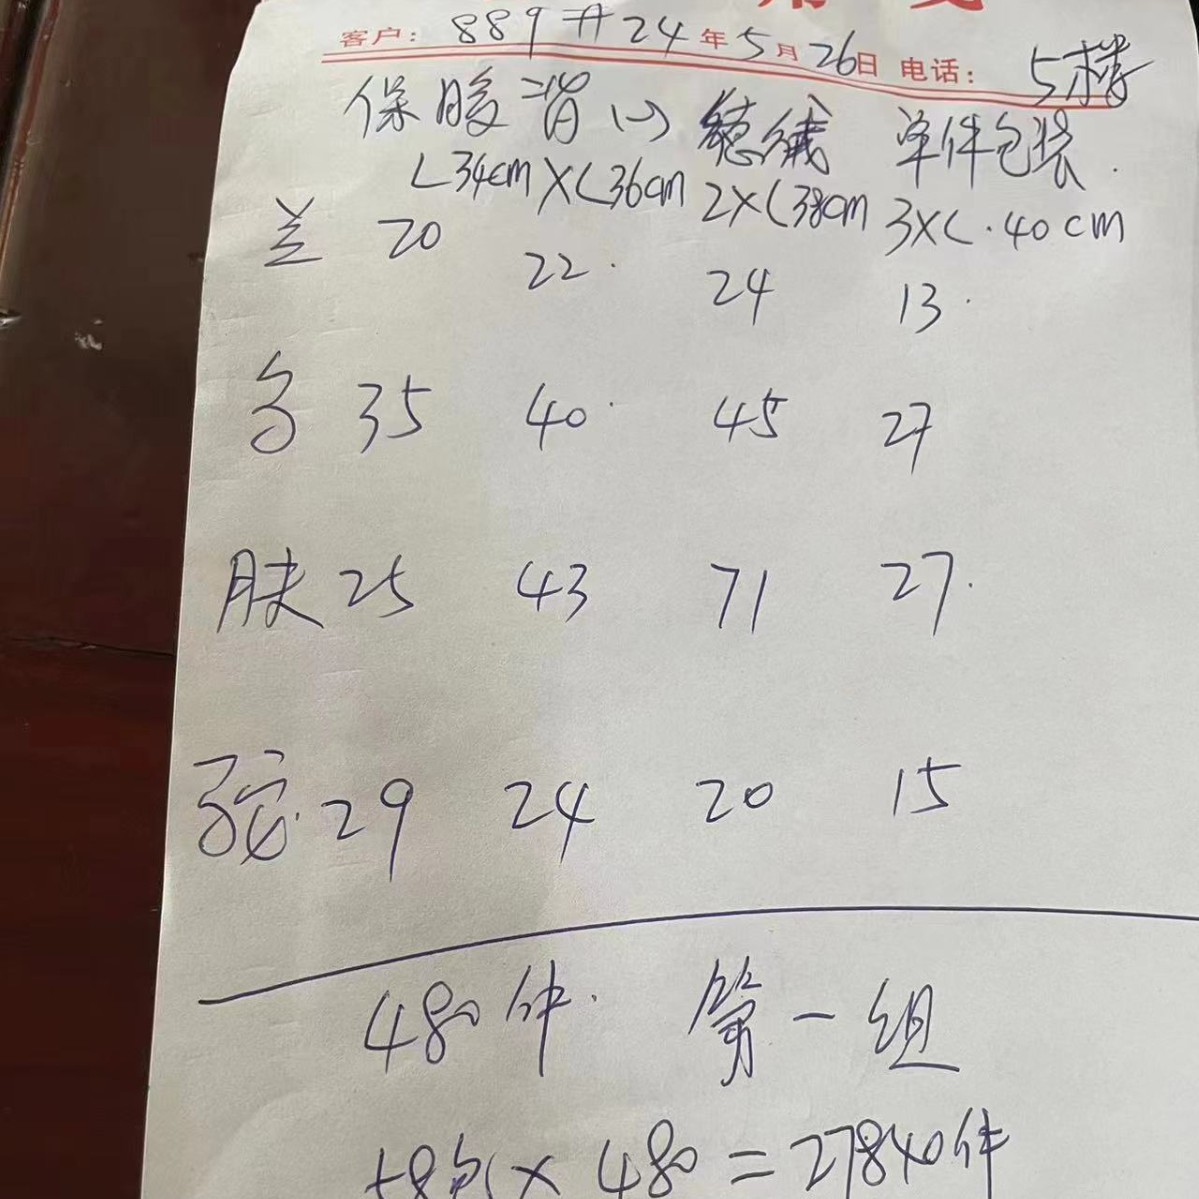 客户: 889# 24年5月26日 电话: 5楼
保暖背心 德绒 单件包装
L34cm XL36cm 2XL38cm 3XL.40cm
兰 20 22 24 13
35 40 45 27
肤 25 43 71 27
29 24 20 15
480件 第一组
58包×480=27840件